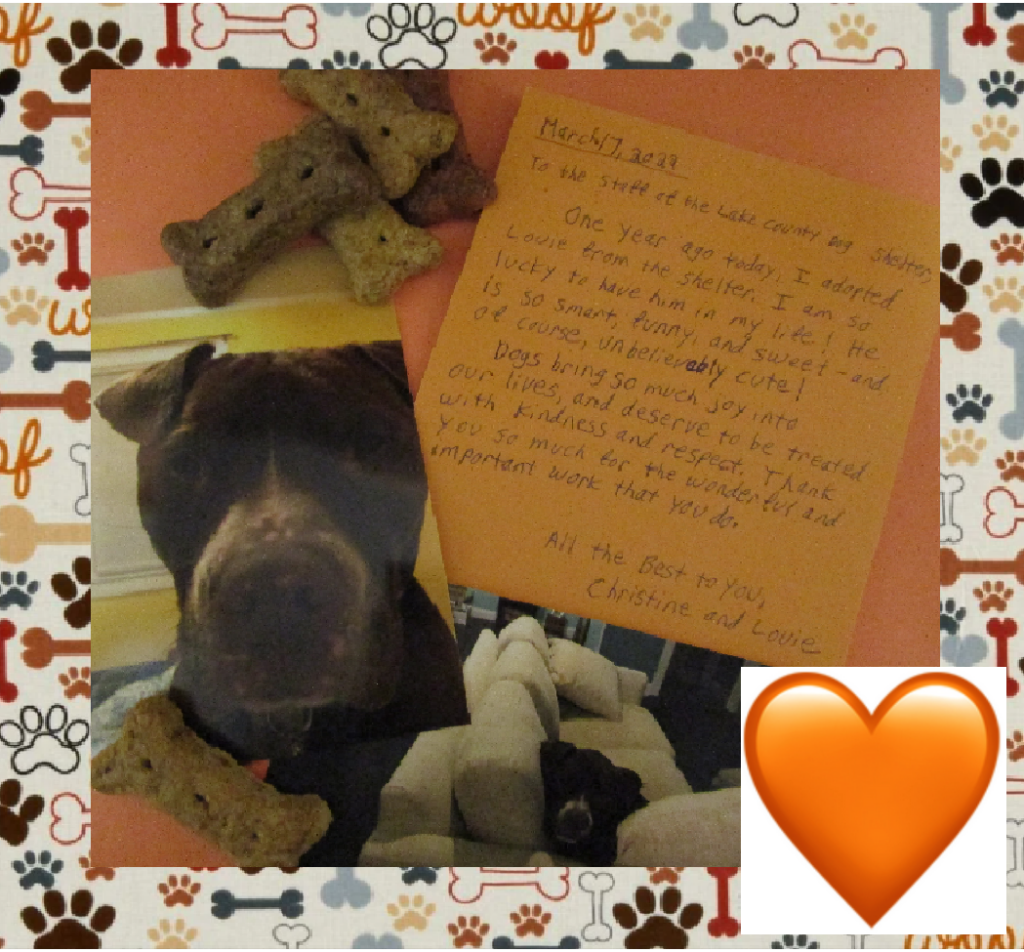 woof
March 17, 2022
To the staff of the Lake County Dog Shelter,
One year ago today, I adopted
Louie from the shelter. I am so
lucky to have him in my life! He
is so smart, funny, and sweet - and
of course, unbelievably cute!
Dogs bring so much joy into
our lives, and deserve to be treated
with kindness and respect. Thank
you so much for the wonderful and
important work that you do.
All the Best to You,
Christine and Louie